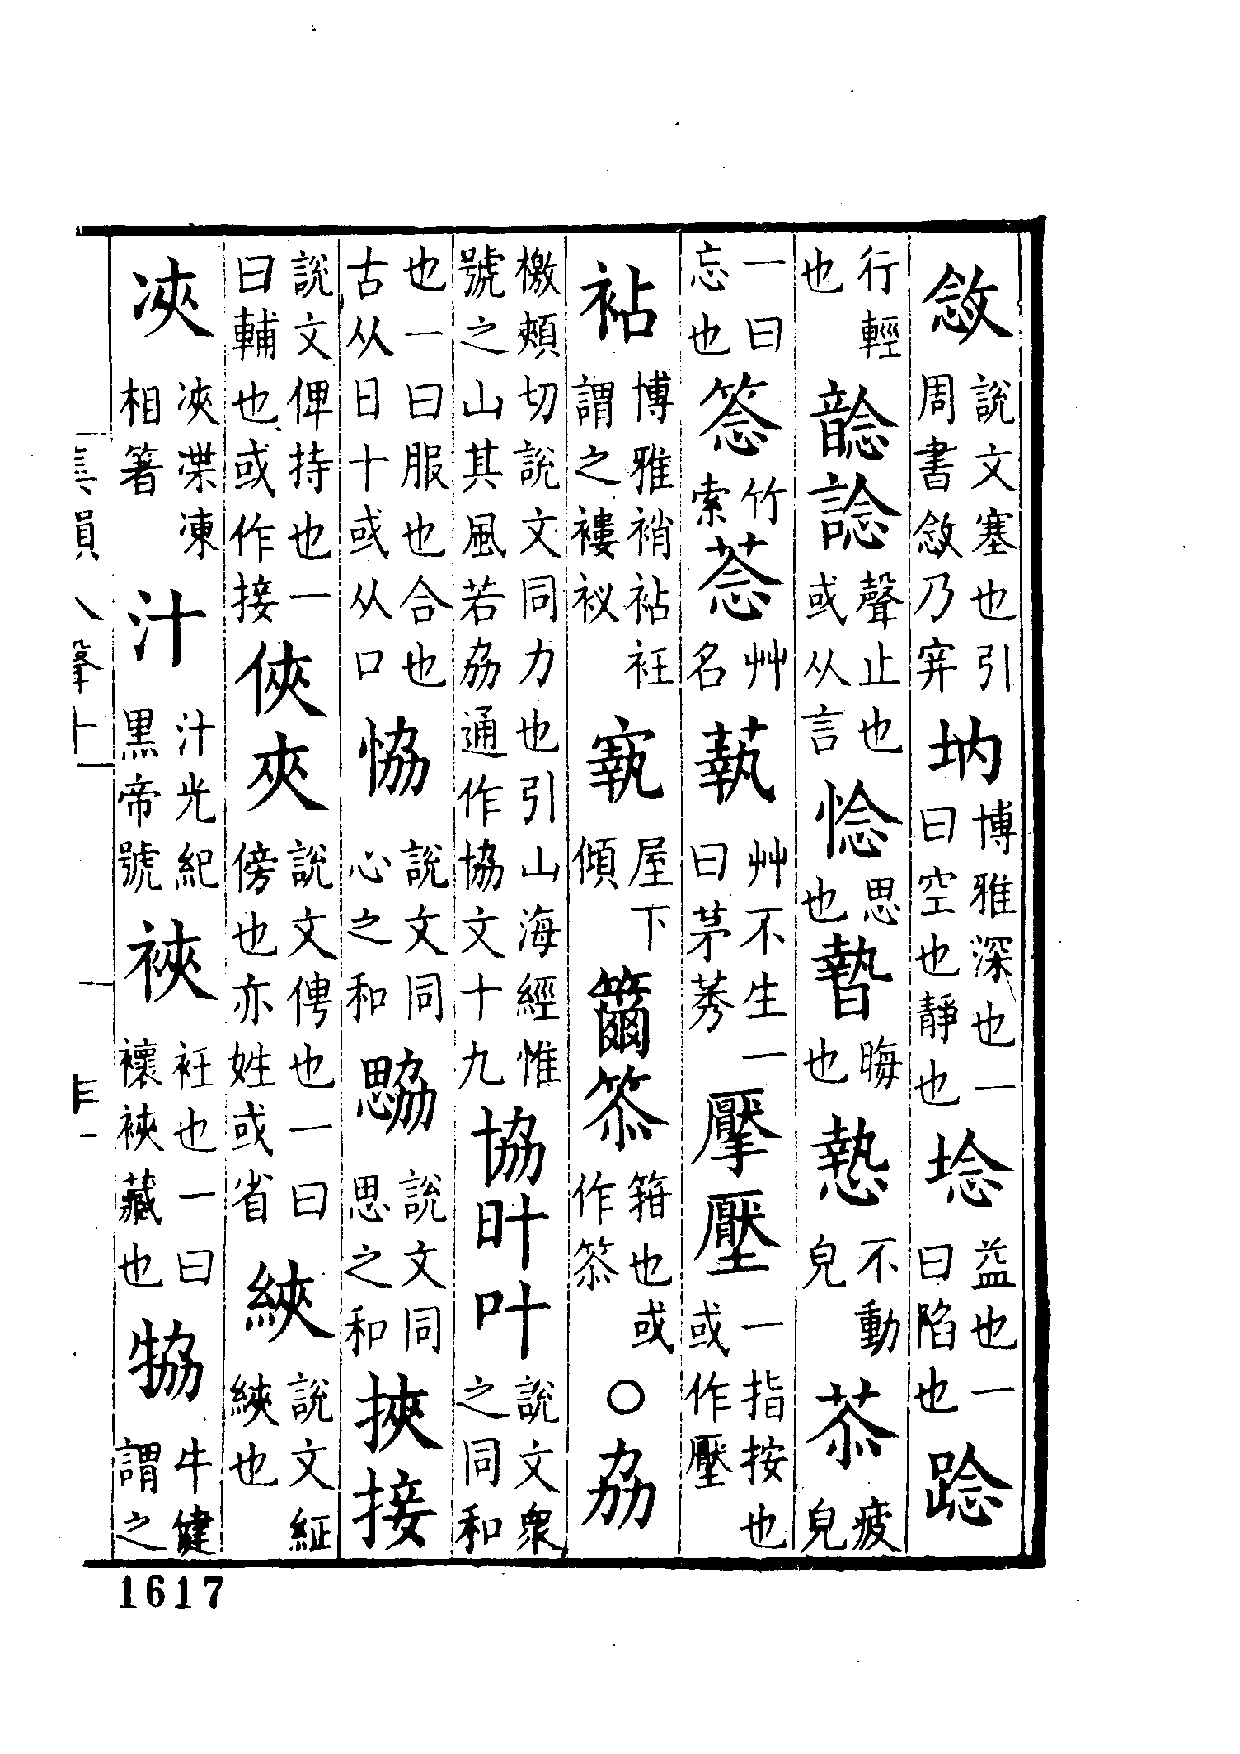 敜說文塞也引周書敜乃穽㘨博雅深也一曰空也靜也埝益也一曰陷也踗
行輕也䭃諗聲止也或从言惗思也暬晦也慹不動皃苶疲皃
一曰忘也䈖竹索菍艸名蓺艸不生一曰茅莠擪壓一指按也或作壓
䩞博雅𥿡袩衽謂之褸䘟㝪屋下傾籋䈊箝也或作䈊〇劦
檄頰切說文同力也引山海經惟號之山其風若劦通作協文十九協旪叶說文衆之同和
也一曰服也合也古从日十或从口恊說文同心之和勰說文同思之和挾接
說文俾持也一曰輔也或作接俠夾說文俜也一曰傍也亦姓或省綊說文紝綊也
浹浹渫凍相箸汁汁光紀黑帝號裌衽也一曰褱裌藏也㹂牛健謂之
1617